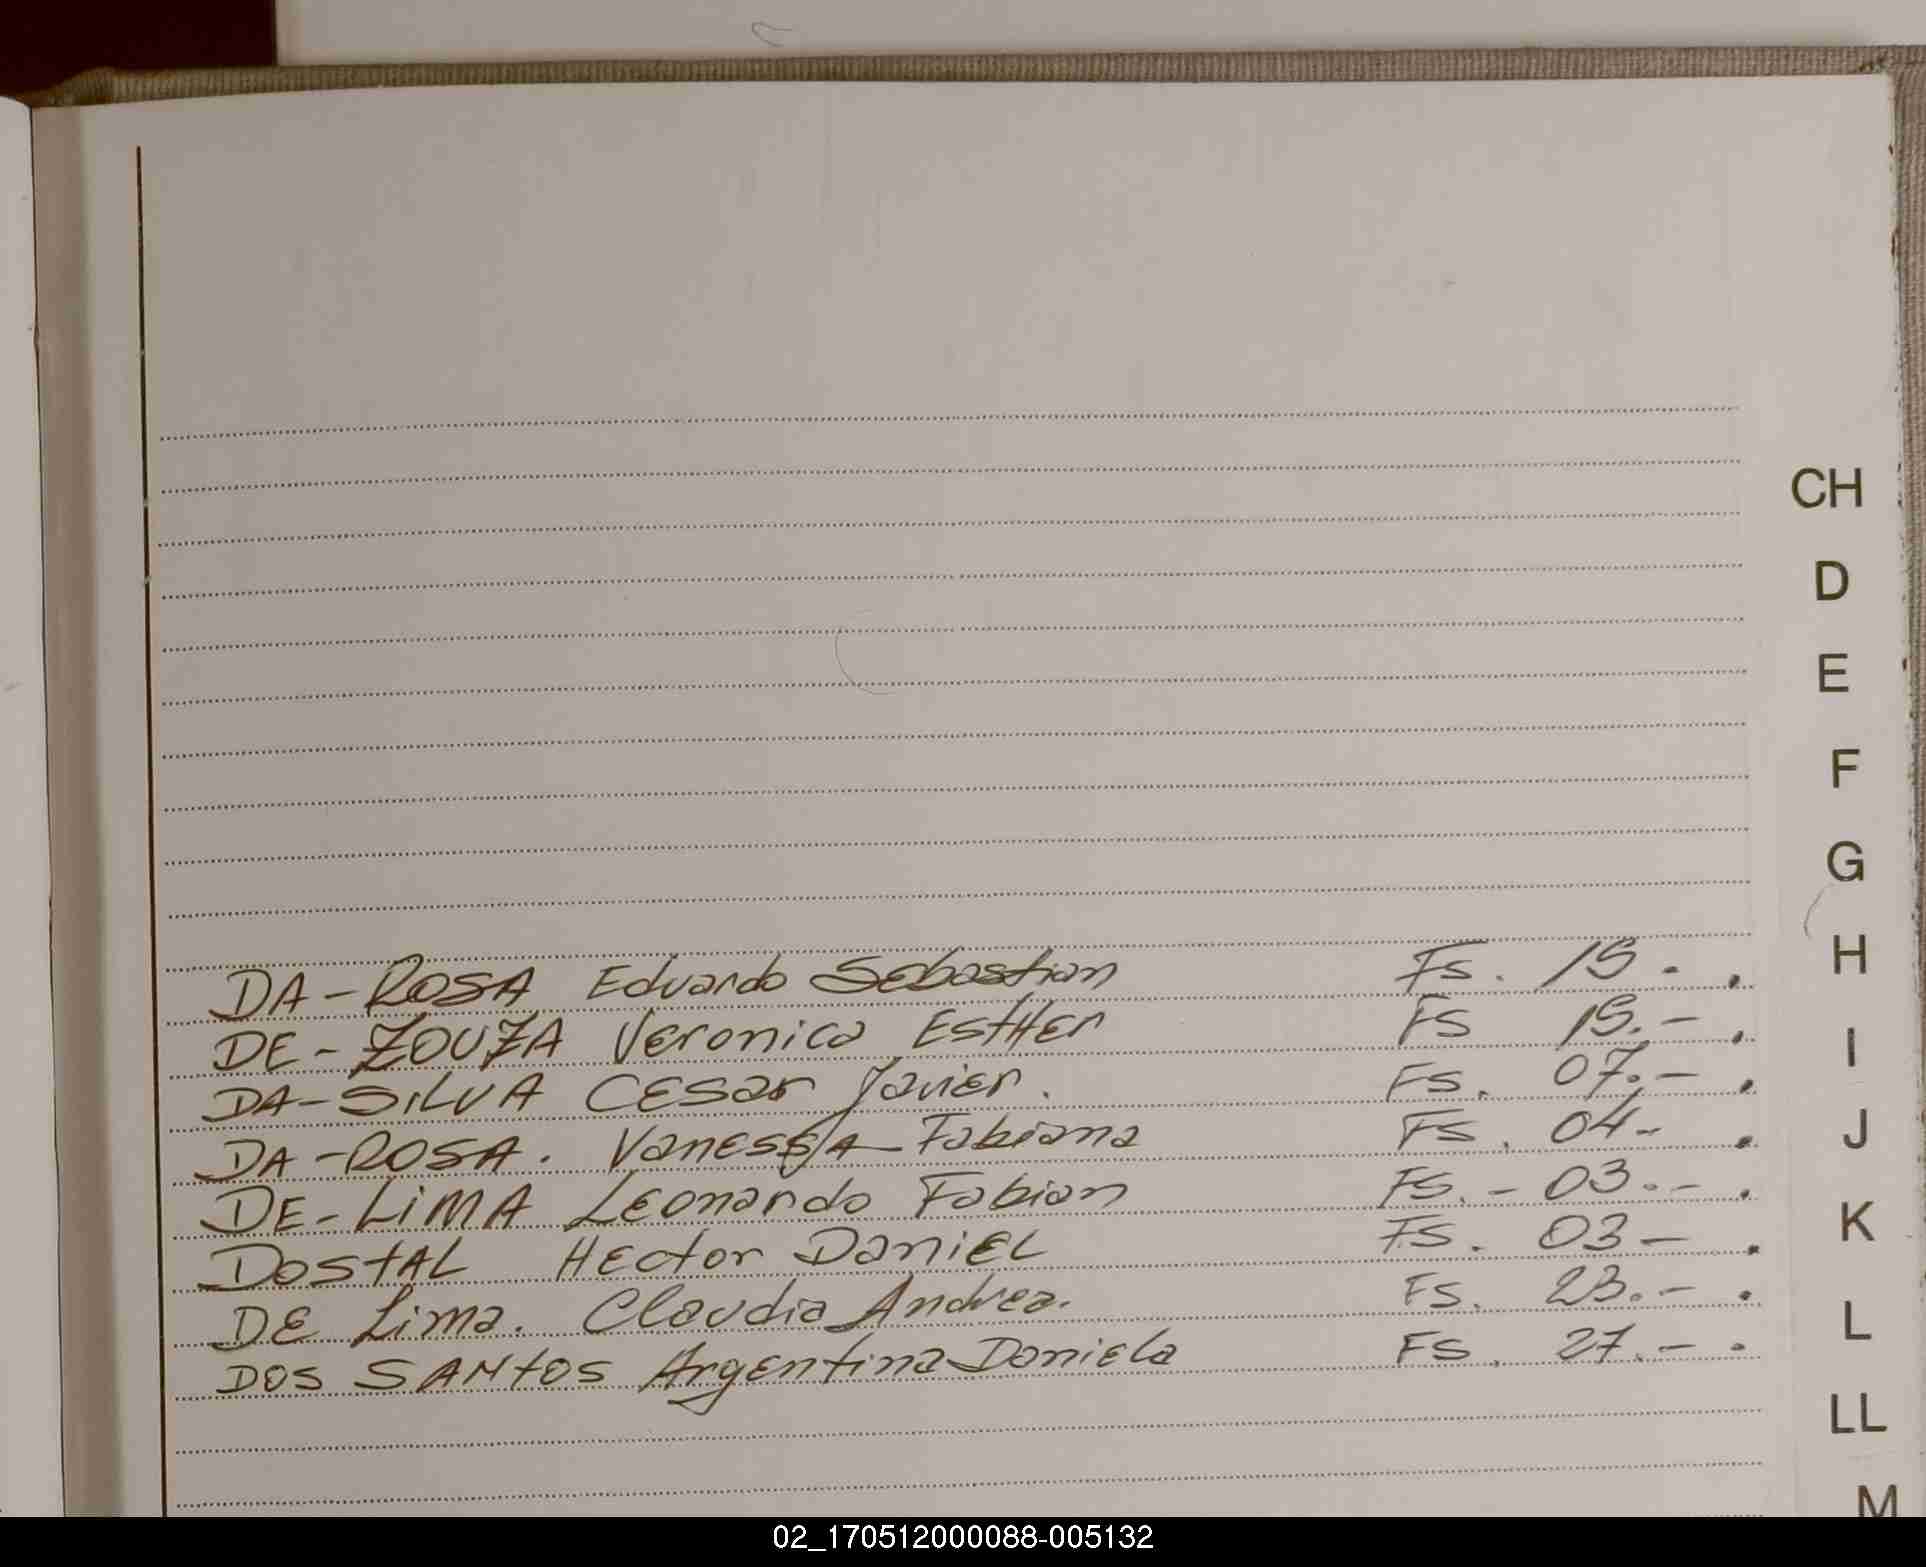 CH
D
E
F
G
H
I
J
K
L
LL
M
DA-ROSA Eduardo Sebastian Fs. 15. .
DE-ZOUZA Veronica EstHEr FS 15.- .
DA-SiLVA CESar Javier. FS. 07.- .
DA-ROSA. VanESSA Fabiana FS. 04.- .
DE-LiMA Leonardo Fabian FS.- 03.- .
DOStAL HEctor DaniEL FS. 03- .
DE Lima. Claudia Andrea. FS. 23.- .
DOS SANtOS Argentina Daniela FS. 27.- .
02_170512000088-005132